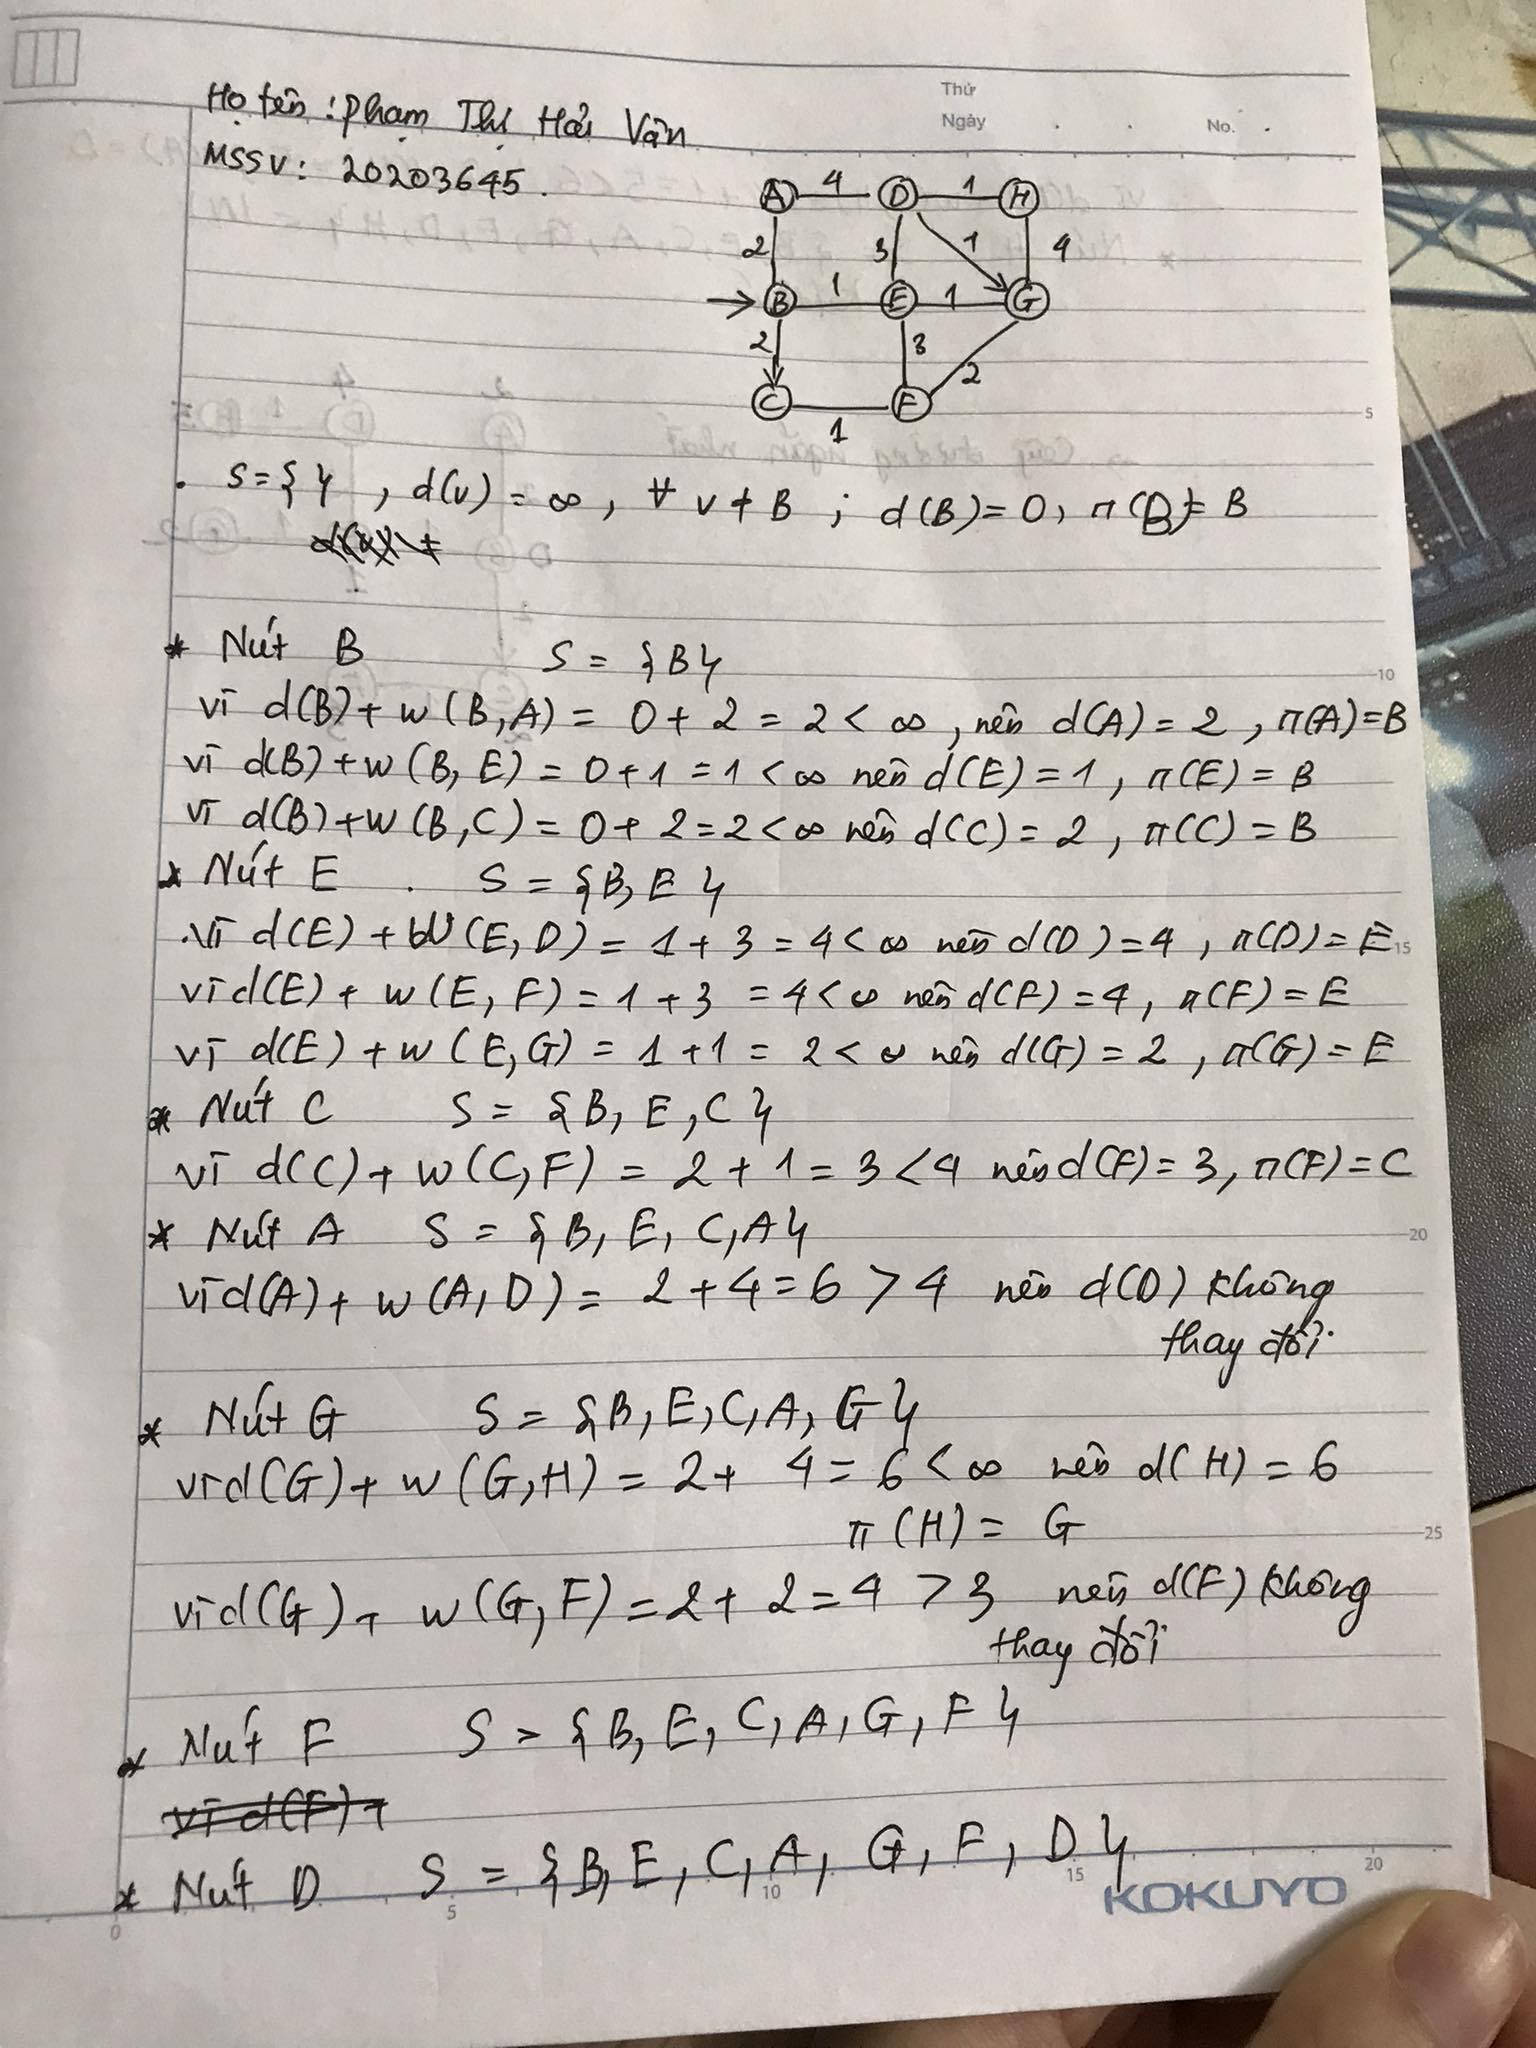 Họ tên : Phạm Thị Hải Vân
Thứ
Ngày . . No. .
MSSV: 20203645.
A 4 D 1 H
2 3 1 4
B 1 E 1 G
2 3 2
C F
1
5
. S = { } , d(v) = ∞ , ∀ v ≠ B ; d(B) = 0, π(B) = B
* Nút B S = {B}
10
vì d(B) + w(B, A) = 0 + 2 = 2 < ∞ , nên d(A) = 2 , π(A) = B
vì d(B) + w(B, E) = 0 + 1 = 1 < ∞ nên d(E) = 1 , π(E) = B
vì d(B) + w(B, C) = 0 + 2 = 2 < ∞ nên d(C) = 2 , π(C) = B
* Nút E . S = {B, E}
.vì d(E) + w(E, D) = 1 + 3 = 4 < ∞ nên d(D) = 4 , π(D) = E
15
vì d(E) + w(E, F) = 1 + 3 = 4 < ∞ nên d(F) = 4, π(F) = E
vì d(E) + w(E, G) = 1 + 1 = 2 < ∞ nên d(G) = 2 , π(G) = E
* Nút C S = {B, E, C}
vì d(C) + w(C, F) = 2 + 1 = 3 < 4 nên d(F) = 3, π(F) = C
* Nút A S = {B, E, C, A}
20
vì d(A) + w(A, D) = 2 + 4 = 6 > 4 nên d(D) không
thay đổi.
* Nút G S = {B, E, C, A, G}
vì d(G) + w(G, H) = 2 + 4 = 6 < ∞ nên d(H) = 6
π(H) = G
25
vì d(G) + w(G, F) = 2 + 2 = 4 > 3 nên d(F) không
thay đổi
* Nút F S = {B, E, C, A, G, F}
vì d(F) +
* Nút D S = {B, E, C, A, G, F, D}
0 5 10 15 20
KOKUYO